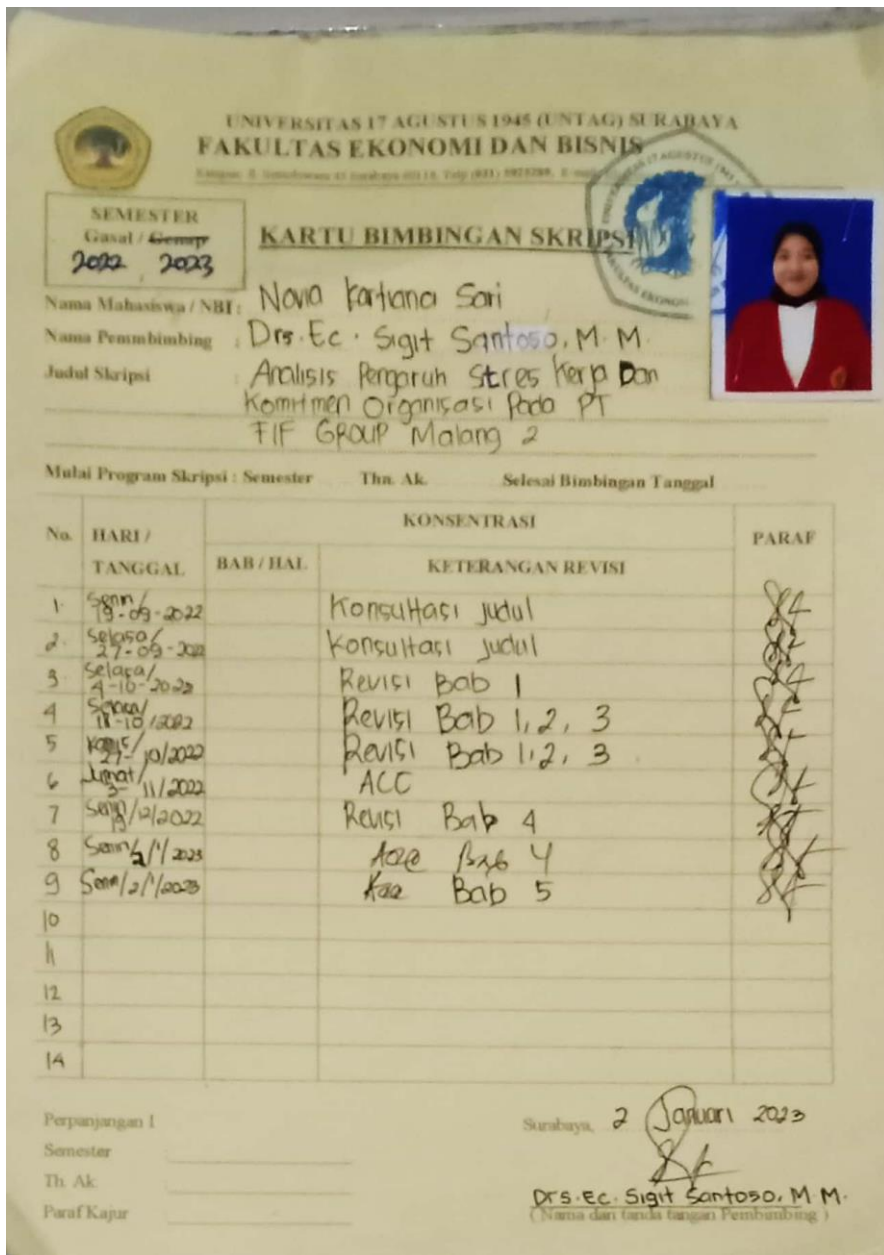 UNIVERSITAS 17 AGUSTUS 1945 (UNTAG) SURABAYA
FAKULTAS EKONOMI DAN BISNIS
SEMESTER
Gasal / Genap
2022 2023
KARTU BIMBINGAN SKRIPSI
Nama Mahasiswa / NBI : Novia Kartiana Sari
Nama Pemmbimbing : Drs. Ec. Sigit Santoso, M.M.
Judul Skripsi : Analisis Pengaruh Stres Kerja Dan
Komitmen Organisasi Pada PT
FIF GROUP Malang 2
Mulai Program Skripsi : Semester Thn. Ak. Selesai Bimbingan Tanggal
No. HARI / TANGGAL KONSENTRASI PARAF
BAB / HAL KETERANGAN REVISI
1. Senin/ 19-09-2022 Konsultasi judul
2. Selasa/ 27-09-2022 Konsultasi judul
3. Selasa/ 4-10-2022 Revisi Bab 1
4 Selasa/ 18-10/2022 Revisi Bab 1, 2, 3
5 Kamis/ 27-10/2022 Revisi Bab 1, 2, 3
6 Jumat/ 3- 11/2022 ACC
7 Senin/ 19/12/2022 Revisi Bab 4
8 Senin/2/1/2023 Bab 4
9 Senin/2/1/2023 Bab 5
10
11
12
13
14
Perpanjangan I
Surabaya, 2 Januari 2023
Semester
Th. Ak
Drs. Ec. Sigit Santoso, M.M.
Paraf Kajur
( Nama dan tanda tangan Pembimbing )